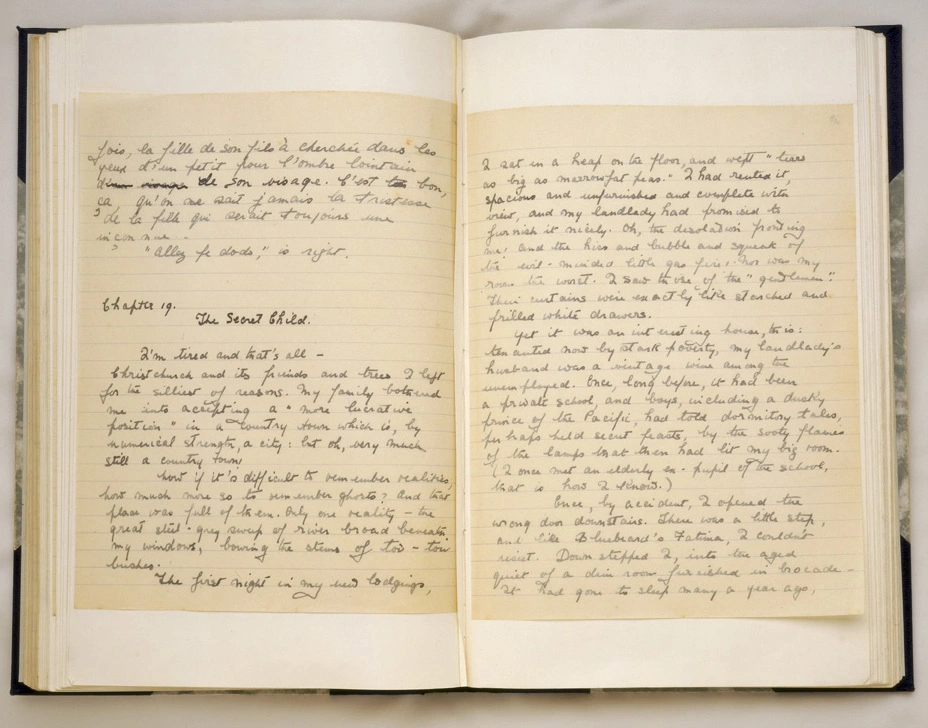 fois, la fille de son fils à cherchée dans les
yeux d'un petit pour l'ombre lointain
de son visage. C'est bon,
ça, qu'on ne sait jamais la tristesse
de la fille qui serait toujours une
inconnue.
"Allez fe dodo," is right.
Chapter 19.
The Secret Child.
I'm tired and that's all –
Christchurch and its friends and trees I left
for the silliest of reasons. My family bothered
me into accepting a "more lucrative
position" in a country town which is, by
numerical strength, a city: but oh, very much
still a country town.
Now if it's difficult to remember realities,
how much more so to remember ghosts? And that
place was full of them. Only one reality – the
great steel-grey sweep of river broad beneath
my windows, bowing the stems of toi-toi
bushes.
The first night in my new lodgings,
I sat in a heap on the floor, and wept "tears
as big as marrowfat peas." I had rented it,
spacious and unfurnished and complete with
view, and my landlady had promised to
furnish it nicely. Oh, the desolation fronting
me: and the hiss and bubble and squeak of
the evil-minded little gas fire: Nor was my
room the worst. I saw those of the "gentlemen".
Their curtains were exactly like starched and
frilled white drawers.
Yet it was an interesting house, this:
tenanted now by stark poverty, my landlady's
husband was a vintage wine among the
unemployed. Once, long before, it had been
a private school, and boys, including a dusky
prince of the Pacific, had told dormitory tales,
perhaps held secret feasts, by the sooty flames
of the lamps that then had lit my big room.
(I once met an elderly ex-pupil of the school,
that is how I know.)
Once, by accident, I opened the
wrong door downstairs. There was a little step,
and like Bluebeard's Fatima, I couldn't
resist. Down stepped I, into the aged
quiet of a dim room furnished in brocade –
It had gone to sleep many a year ago,